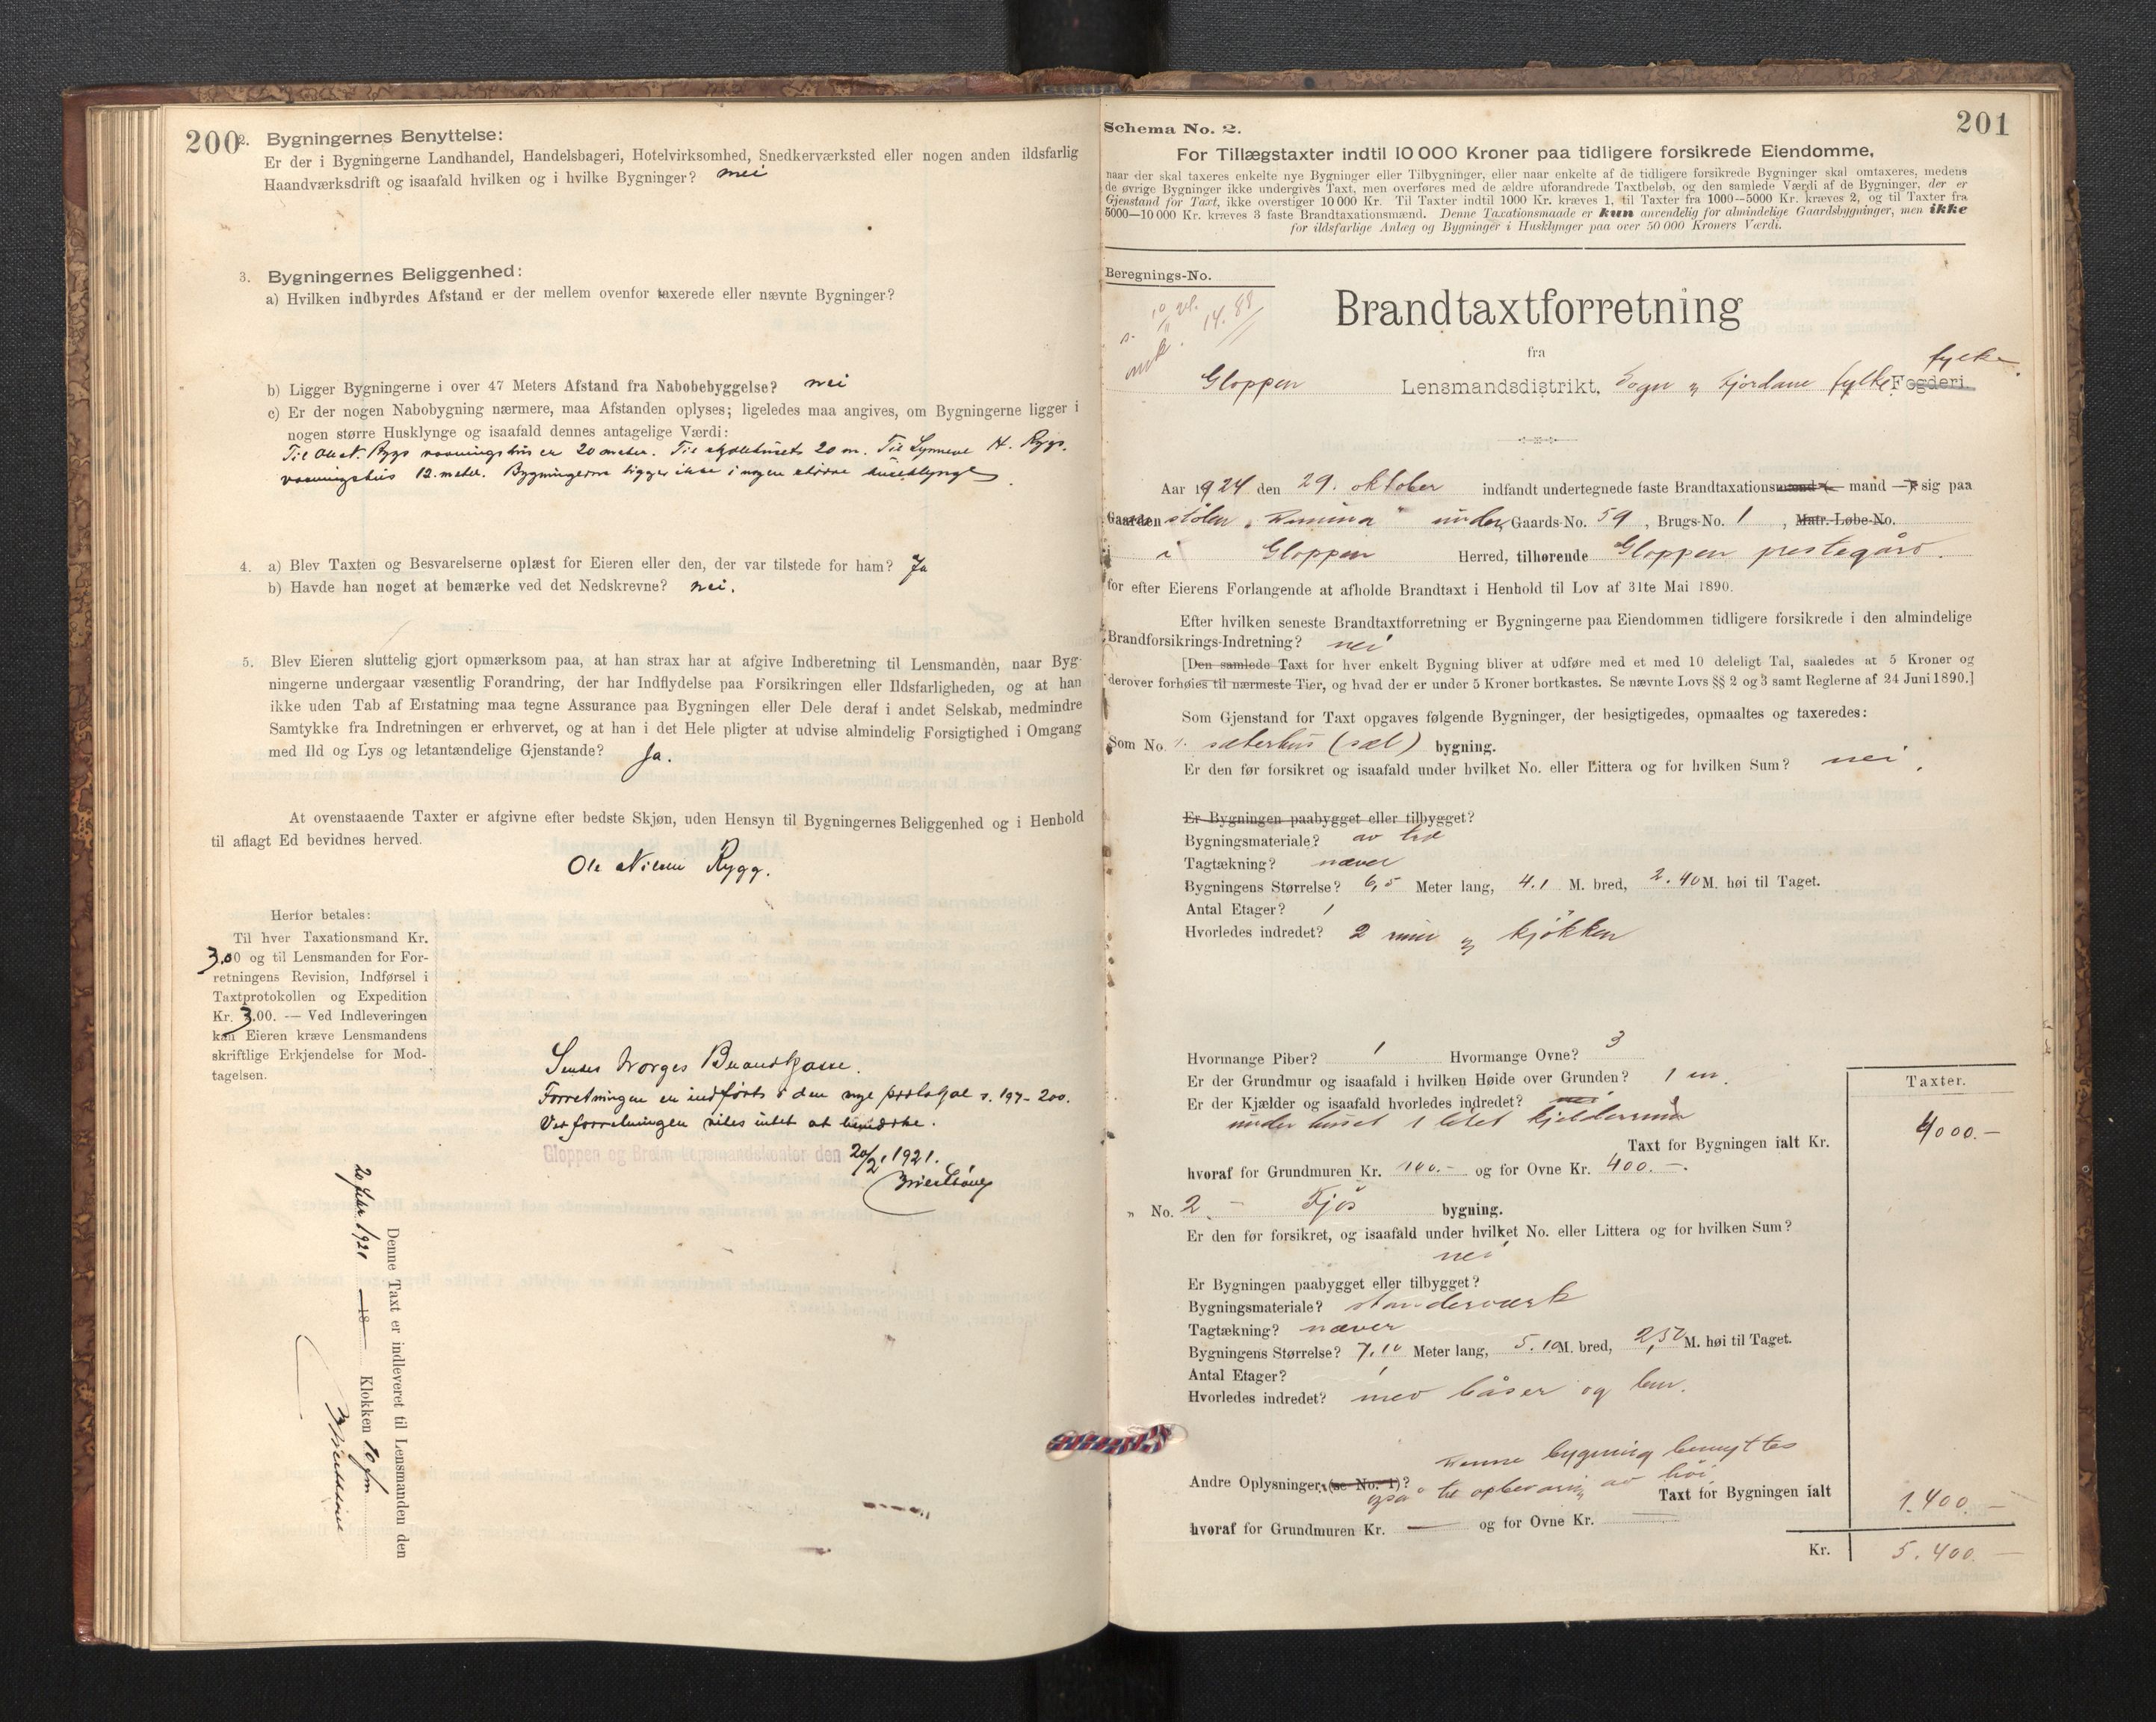 200
2. Bygningernes Benyttelse:
Er der i Bygningerne Landhandel, Handelsbageri, Hotelvirksomhed, Snedkerværksted eller nogen anden ildsfarlig
Haandværksdrift og isaafald hvilken og i hvilke Bygninger? nei
3. Bygningernes Beliggenhed:
a) Hvilken indbyrdes Afstand er der mellem ovenfor taxerede eller nævnte Bygninger?
b) Ligger Bygningerne i over 47 Meters Afstand fra Nabobebyggelse? nei
c) Er der nogen Nabobygning nærmere, maa Afstanden oplyses; ligeledes maa angives, om Bygningerne ligger i
nogen større Husklynge og isaafald dennes antagelige Værdi:
Til Ole N. Ryggs vaaningshus er 20 meter. Til 20 m. Til Synneve H. Ryggs
vaaningshus 12 meter. Bygningerne ligger ikke i nogen større husklynge.
4. a) Blev Taxten og Besvarelserne oplæst for Eieren eller den, der var tilstede for ham? Ja
b) Havde han noget at bemærke ved det Nedskrevne? nei.
5. Blev Eieren sluttelig gjort opmærksom paa, at han strax har at afgive Indberetning til Lensmanden, naar Byg-
ningerne undergaar væsentlig Forandring, der har Indflydelse paa Forsikringen eller Ildsfarligheden, og at han
ikke uden Tab af Erstatning maa tegne Assurance paa Bygningen eller Dele deraf i andet Selskab, medmindre
Samtykke fra Indretningen er erhvervet, og at han i det Hele pligter at udvise almindelig Forsigtighed i Omgang
med Ild og Lys og letantændelige Gjenstande? Ja.
At ovenstaaende Taxter er afgivne efter bedste Skjøn, uden Hensyn til Bygningernes Beliggenhed og i Henhold
til aflagt Ed bevidnes herved.
Ole Nilsen Rygg.
Herfor betales:
Til hver Taxationsmand Kr.
3.00 og til Lensmanden for For-
retningens Revision, Indførsel i
Taxtprotokollen og Expedition
Kr. 3.00. — Ved Indleveringen
kan Eieren kræve Lensmandens
skriftlige Erkjendelse for Mod-
tagelsen.
Sendes Norges Brandkasse.
Forretningen er indførts i den nye protokol s. 197-200.
Ved forretningen vites intet at bemerke.
Gloppen og Breim Lensmandskontor den 20/2 1921.
Denne Taxt er indleveret til Lensmanden den
20 febr 1921 18 Klokken 10 fm
201
Schema No. 2.
For Tillægstaxter indtil 10 000 Kroner paa tidligere forsikrede Eiendomme,
naar der skal taxeres enkelte nye Bygninger eller Tilbygninger, eller naar enkelte af de tidligere forsikrede Bygninger skal omtaxeres, medens
de øvrige Bygninger ikke undergives Taxt, men overføres med de ældre uforandrede Taxtbeløb, og den samlede Værdi af de Bygninger, der er
Gjenstand for Taxt, ikke overstiger 10 000 Kr. Til Taxter indtil 1000 Kr. kræves 1, til Taxter fra 1000—5000 Kr. kræves 2, og til Taxter fra
5000—10 000 Kr. kræves 3 faste Brandtaxationsmænd. Denne Taxationsmaade er kun anvendelig for almindelige Gaardsbygninger, men ikke
for ildsfarlige Anlæg og Bygninger i Husklynger paa over 50 000 Kroners Værdi.
Beregnings-No.
14.88
Brandtaxtforretning
fra
fylke
Gloppen Lensmandsdistrikt, Sogn og Fjordane fylke Fogderi.
Aar 1924 den 29. oktober indfandt undertegnede faste Brandtaxationsmænd mand sig paa
Gaarden stølen under Gaards-No. 59, Brugs-No. 1, Matr.-Løbe-No.
i i Gloppen Herred, tilhørende Gloppen prestegård.
for efter Eierens Forlangende at afholde Brandtaxt i Henhold til Lov af 31te Mai 1890.
Efter hvilken seneste Brandtaxtforretning er Bygningerne paa Eiendommen tidligere forsikrede i den almindelige
Brandforsikrings-Indretning? nei
[Den samlede Taxt for hver enkelt Bygning bliver at udføre med et med 10 deleligt Tal, saaledes at 5 Kroner og
derover forhøies til nærmeste Tier, og hvad der er under 5 Kroner bortkastes. Se nævnte Lovs §§ 2 og 3 samt Reglerne af 24 Juni 1890.]
Som Gjenstand for Taxt opgaves følgende Bygninger, der besigtigedes, opmaaltes og taxeredes:
Som No. 1. sæterhus (sæl) bygning.
Er den før forsikret og isaafald under hvilket No. eller Littera og for hvilken Sum? nei.
Er Bygningen paabygget eller tilbygget?
Bygningsmateriale? av tre
Tagtækning? næver
Bygningens Størrelse? 6,5 Meter lang, 4.1 M. bred, 2.40 M. høi til Taget.
Antal Etager? 1
Hvorledes indredet? 2 rum og kjøkken
Hvormange Piber? 1 Hvormange Ovne? 3
Er der Grundmur og isaafald i hvilken Høide over Grunden? 1 m.
Taxter.
Er der Kjælder og isaafald hvorledes indredet? nei
under huset 1 litet kjelderrum
Taxt for Bygningen ialt Kr. 4000.-
hvoraf for Grundmuren Kr. 100.- og for Ovne Kr. 400.-.
" No. 2. - Fjøs bygning.
Er den før forsikret, og isaafald under hvilket No. eller Littera og for hvilken Sum?
nei
Er Bygningen paabygget eller tilbygget?
Bygningsmateriale? standerværk
Tagtækning? næver
Bygningens Størrelse? 7.10 Meter lang, 5.10 M. bred, 2,50 M. høi til Taget.
Antal Etager? 1
Hvorledes indredet? med båser og
Denne bygning benyttes
Andre Oplysninger (se No. 1)? også til opbevaring av høi
Taxt for Bygningen ialt 1.400.-
hvoraf for Grundmuren Kr. — og for Ovne Kr. —
Kr. 5.400.-